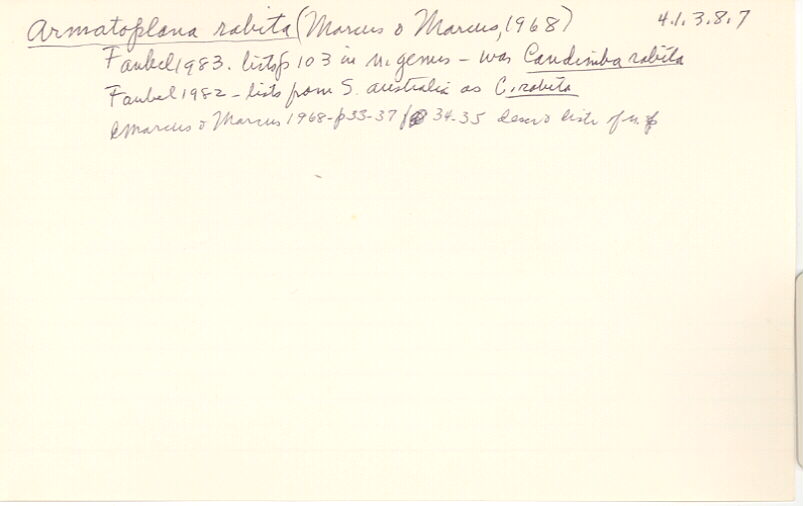 Armatoplana rabita (Marcus & Marcus, 1968) 4.1.3.8.7
Faubel 1983. lists p 103 in n. genus – was Candimba rabita
Faubel 1982 – lists from S. Australia as C. rabita
Marcus & Marcus 1968 - p 33-37 f 34-35 descr & distr of n. sp